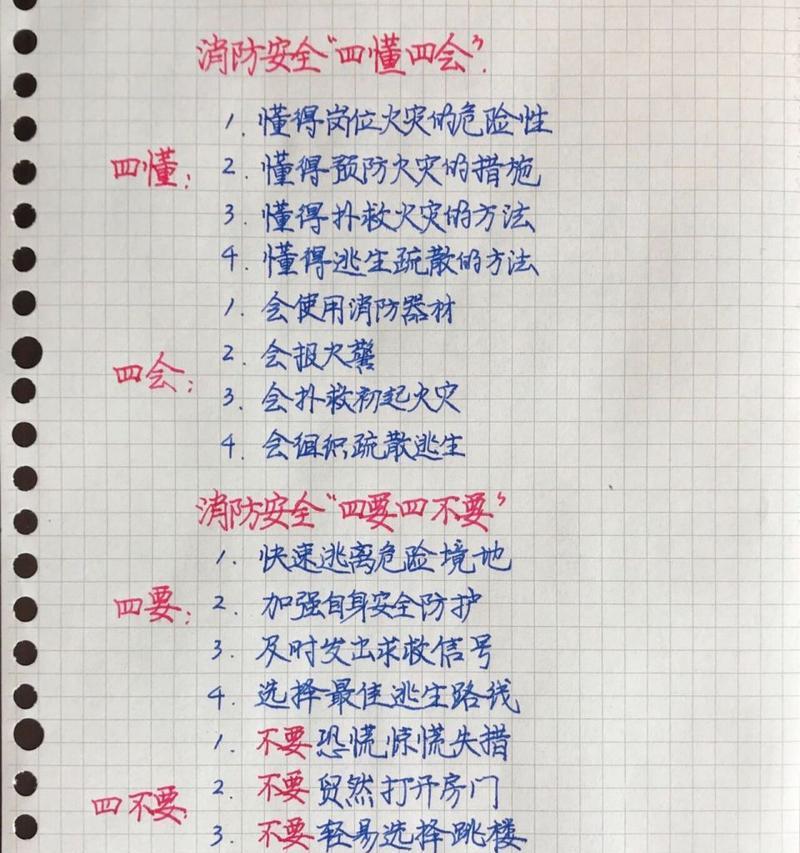 消防安全"四懂四会".
四懂:
1. 懂得岗位火灾的危险性
2. 懂得预防火灾的措施
3. 懂得扑救火灾的方法
4. 懂得逃生疏散的方法
四会:
1. 会使用消防器材
2. 会报火警
3. 会扑救初起火灾
4. 会组织疏散逃生
消防安全"四要四不要"
四要:
1. 快速逃离危险境地
2. 加强自身安全防护
3. 及时发出求救信号
4. 选择最佳逃生路线
四不要:
1. 不要恐慌惊慌失措
2. 不要贸然打开房门
3. 不要轻易选择跳楼